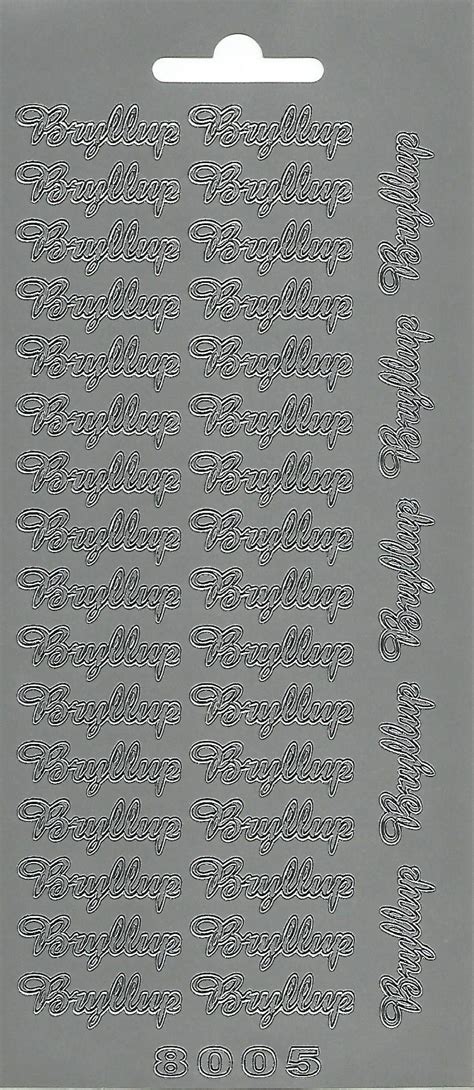 Bryllup Bryllup
Bryllup Bryllup
Bryllup Bryllup
Bryllup Bryllup
Bryllup Bryllup
Bryllup Bryllup
Bryllup Bryllup
Bryllup Bryllup
Bryllup Bryllup
Bryllup Bryllup
Bryllup Bryllup
Bryllup Bryllup
Bryllup Bryllup
Bryllup Bryllup
Bryllup Bryllup
Bryllup Bryllup
Bryllup
Bryllup
Bryllup
Bryllup
Bryllup
8005